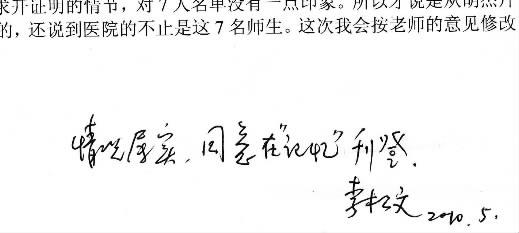 求开证明的情节，对7人名单没有一点印象。所以才说是从明照片
的，还说到医院的不止是这7名师生。这次我会按老师的意见修改
情况属实，同意在“记忆”刊登．
李松文 2010.5.